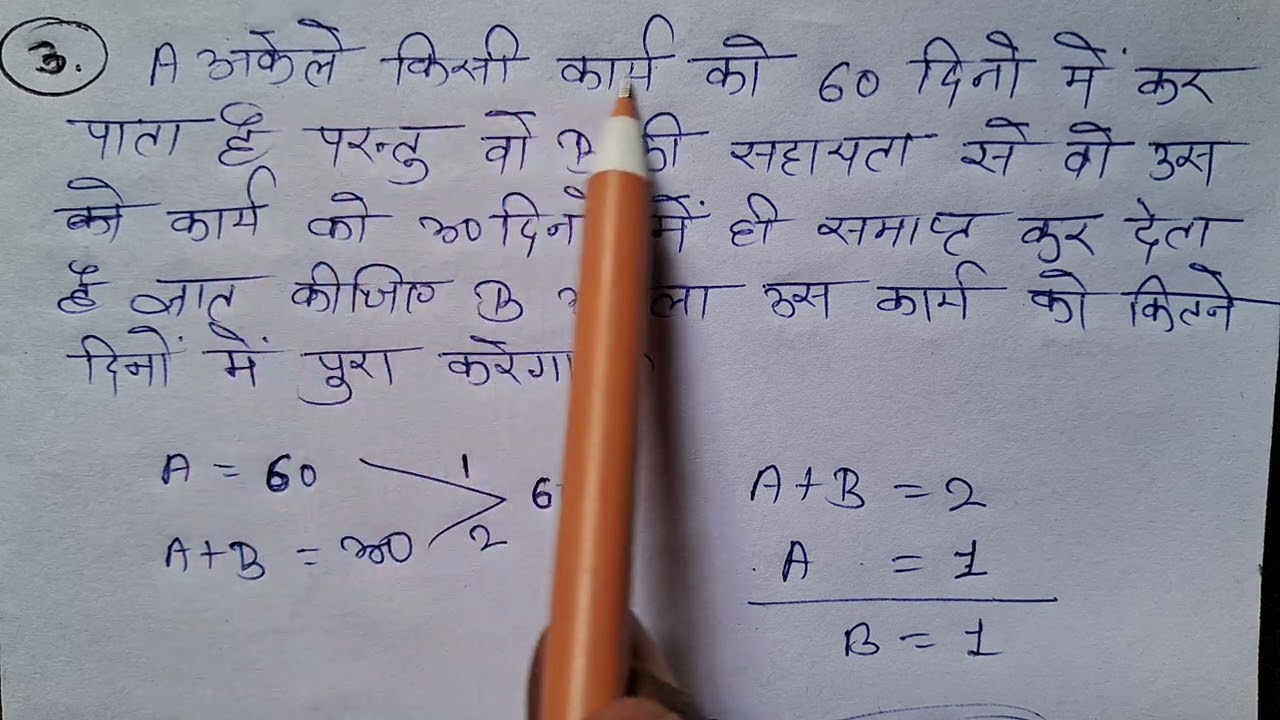 3. A अकेले किसी कार्य को 60 दिनो में कर
पाता है परन्तु वो B की सहायता से वो उस
कार्य को 30 दिनो में ही समाप्त कर देता
है ज्ञात कीजिए B उस कार्य को कितने
दिनों में पुरा करेगा
A = 60 1
A+B = 30 2
A+B = 2
A = 1
B = 1